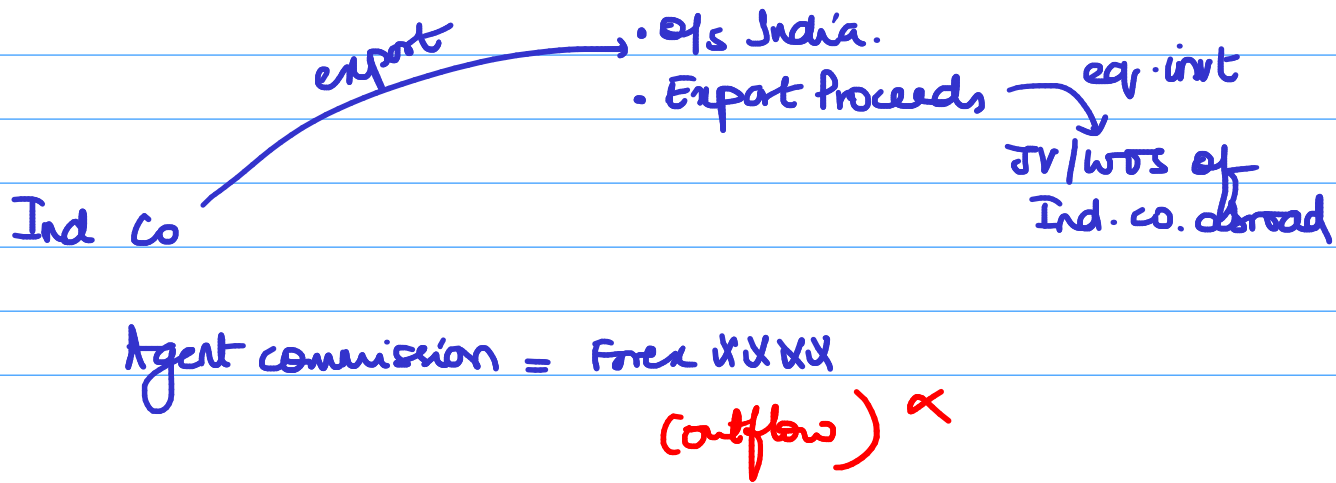 export
• O/s India.
• Export Proceeds
eq. invt
JV/WOS of
Ind. co. abroad
Ind Co
Agent commission = Forex XXXX
(outflow) ✗